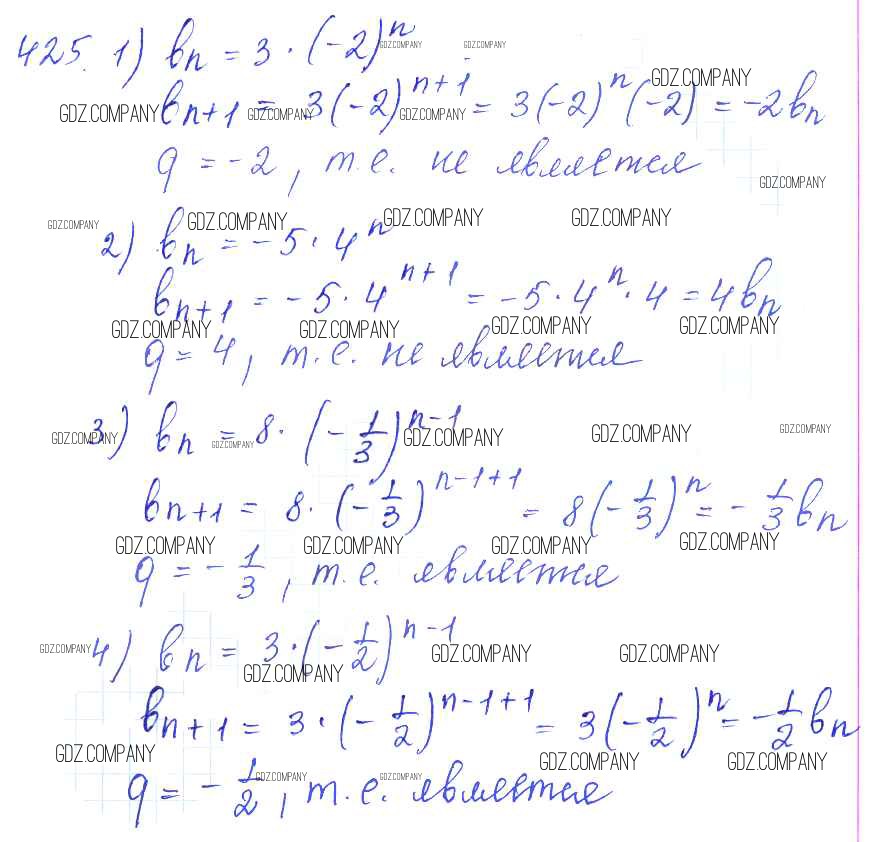 425. 1) bₙ = 3 · (-2)ⁿ
bₙ₊₁ = 3(-2)ⁿ⁺¹ = 3(-2)ⁿ(-2) = -2bₙ
q = -2, т.е. не является
2) bₙ = -5 · 4ⁿ
bₙ₊₁ = -5 · 4ⁿ⁺¹ = -5 · 4ⁿ · 4 = 4bₙ
q = 4, т.е. не является
3) bₙ = 8 · (-1/3)ⁿ⁻¹
bₙ₊₁ = 8 · (-1/3)ⁿ⁻¹⁺¹ = 8(-1/3)ⁿ = -1/3 bₙ
q = -1/3, т.е. является
4) bₙ = 3 · (-1/2)ⁿ⁻¹
bₙ₊₁ = 3 · (-1/2)ⁿ⁻¹⁺¹ = 3(-1/2)ⁿ = -1/2 bₙ
q = -1/2, т.е. является
GDZ.COMPANY